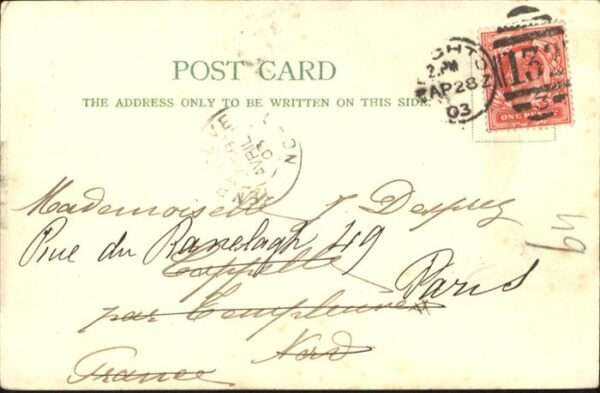 POST CARD
THE ADDRESS ONLY TO BE WRITTEN ON THIS SIDE.
GHTO
2. PM
AP 28
03
132
3
ONE
AVRIL
03
Mademoiselle J Desprez
Rue du Ranelagh 49
Cappelle
Paris
par Templeuve
Nord
France
49